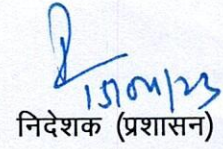 15/04/23
निदेशक (प्रशासन)